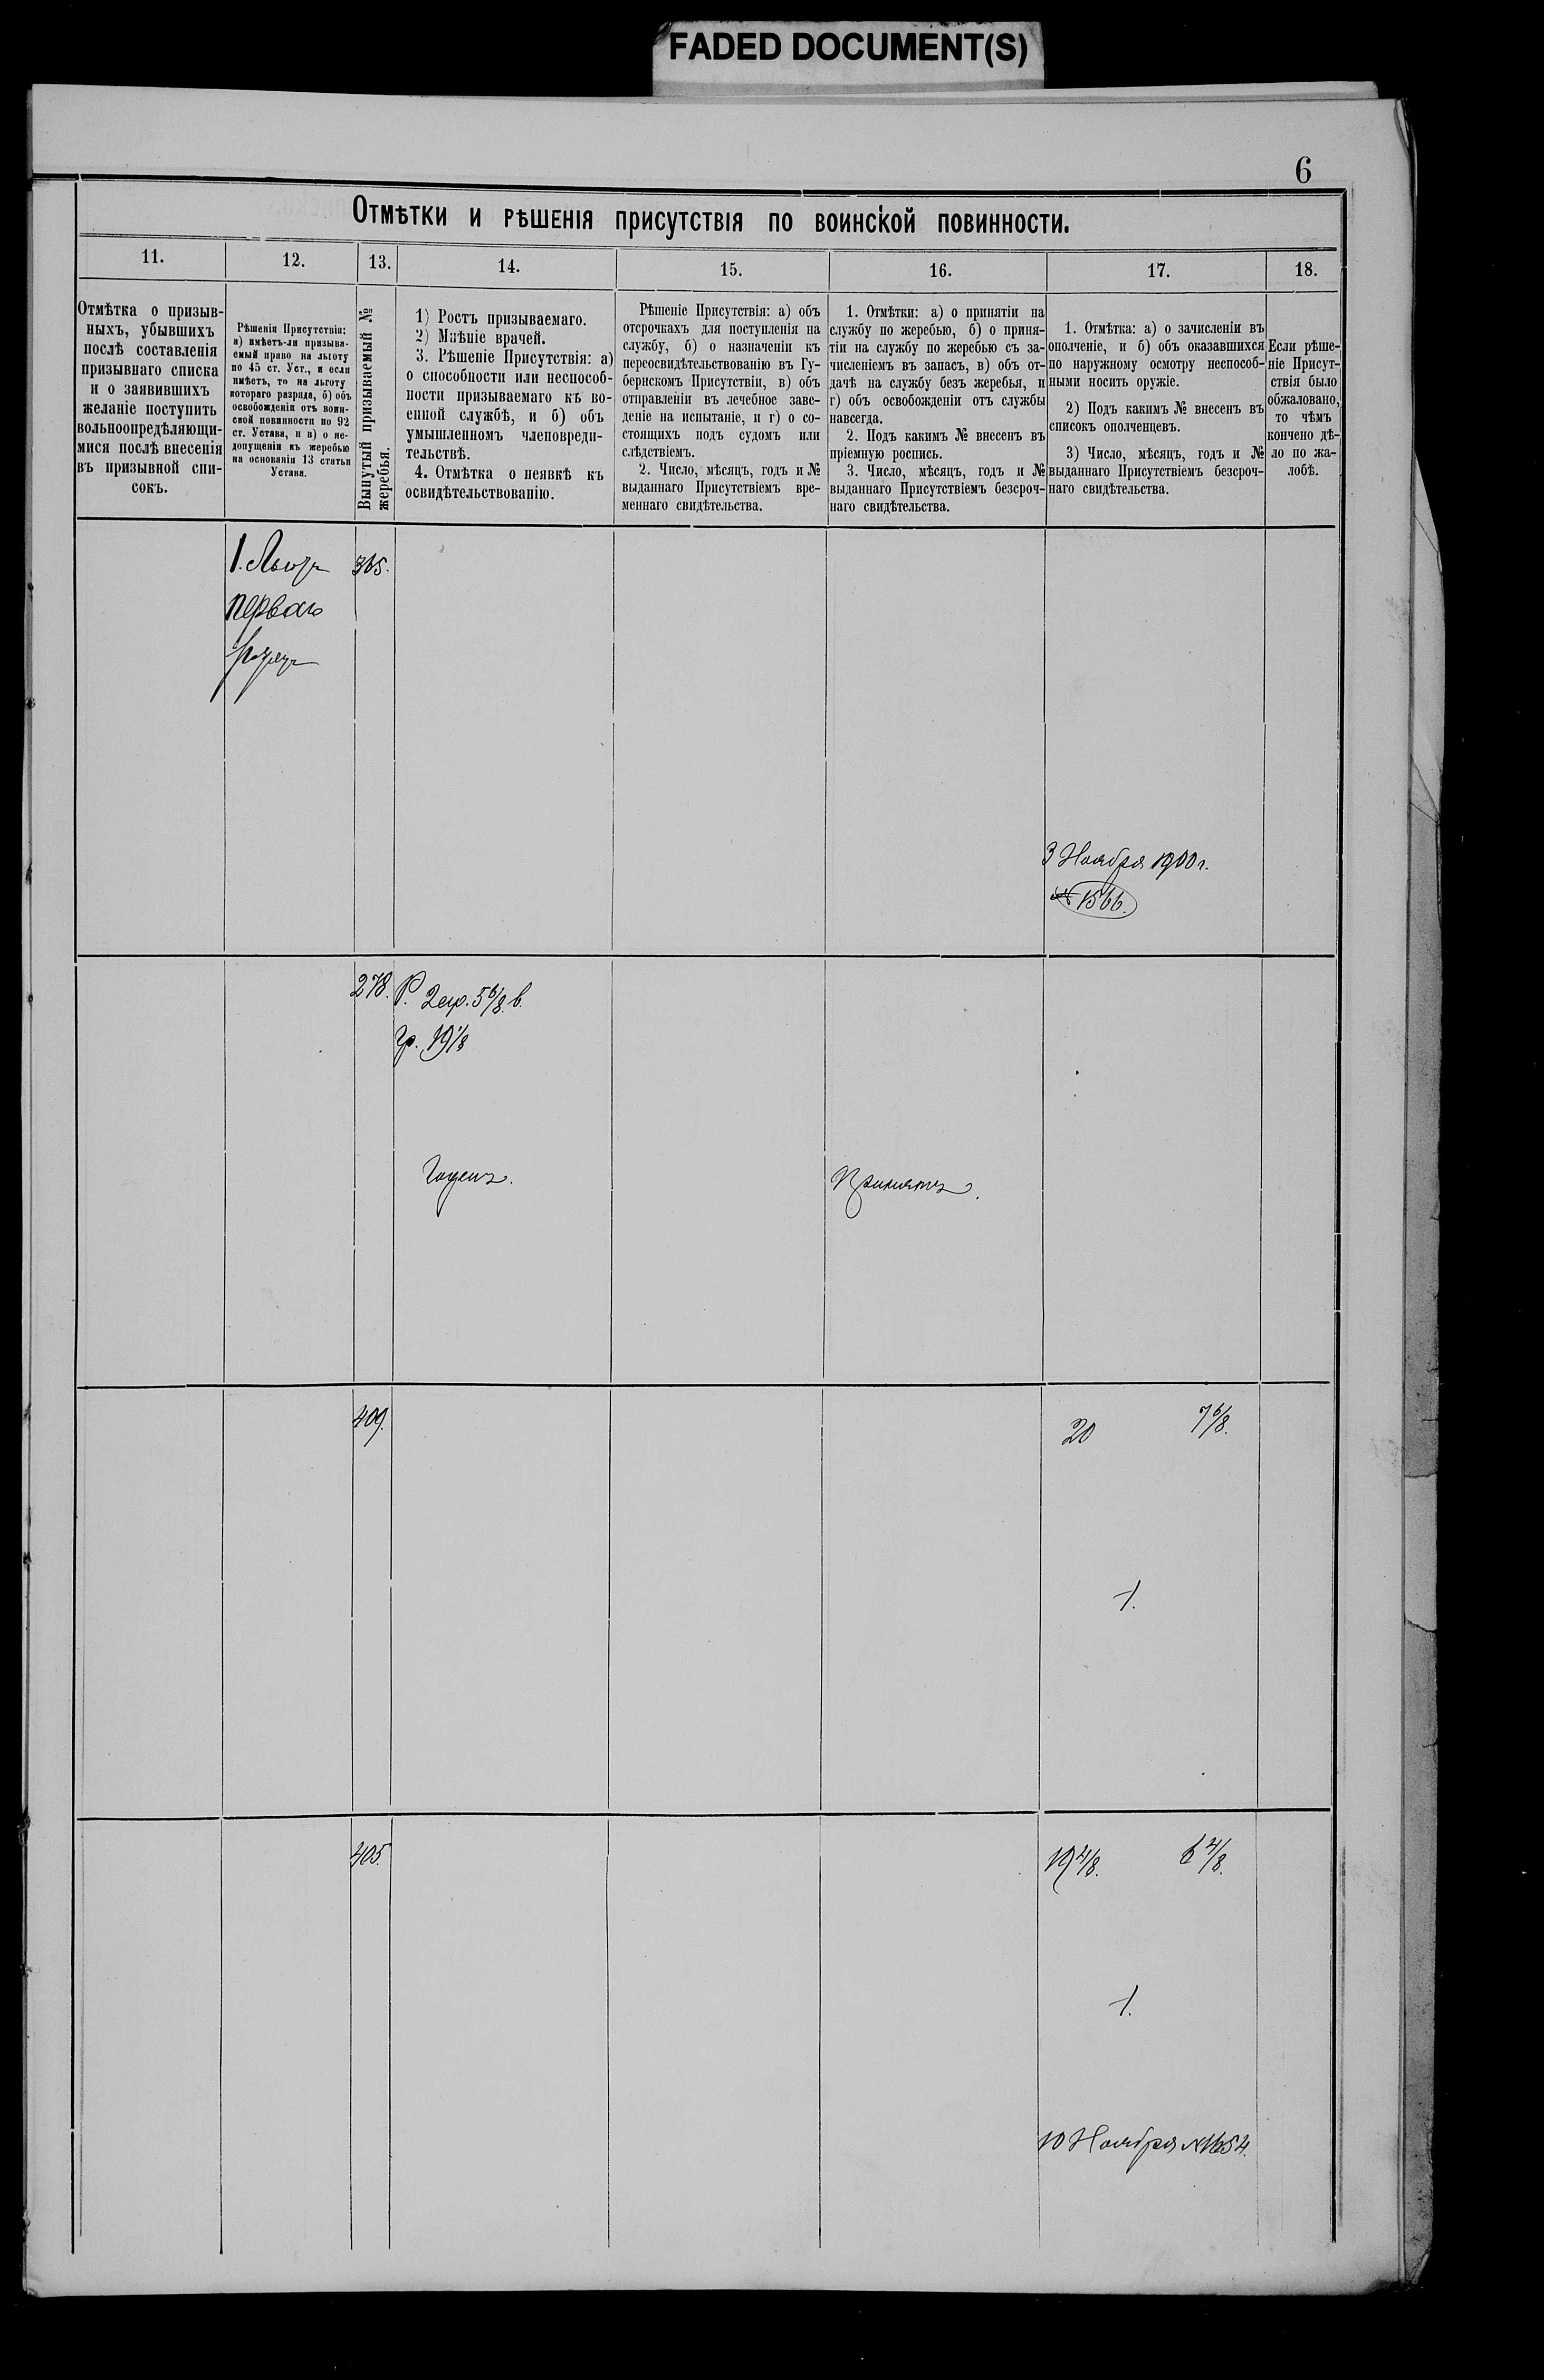 FADED DOCUMENT(S)
6
Отмѣтки и рѣшенія присутствія по воинской повинности.
11.
12.
13.
14.
15.
16.
17.
18.
Отмѣтка о призыв-
ныхъ, убывшихъ
послѣ составленія
призывнаго списка
и о заявившихъ
желаніе поступить
вольноопредѣляющи-
мися послѣ внесенія
въ призывной спи-
сокъ.
Рѣшенія Присутствія:
а) имѣетъ-ли призыва-
емый право на льготу
по 45 ст. Уст., и если
имѣетъ, то на льготу
котораго разряда, б) объ
освобожденіи отъ воин-
ской повинности по 92
ст. Устава, и в) о не-
допущеніи къ жеребью
на основаніи 13 статьи
Устава.
Вынутый призываемый №
жеребья.
1) Ростъ призываемаго.
2) Мнѣніе врачей.
3. Рѣшеніе Присутствія: а)
о способности или неспособ-
ности призываемаго къ во-
енной службѣ, и б) объ
умышленномъ членовреди-
тельствѣ.
4. Отмѣтка о неявкѣ къ
освидѣтельствованію.
Рѣшеніе Присутствія: а) объ
отсрочкахъ для поступленія на
службу, б) о назначеніи къ
переосвидѣтельствованію въ Гу-
бернскомъ Присутствіи, в) объ
отправленіи въ лечебное заве-
деніе на испытаніе, и г) о со-
стоящихъ подъ судомъ или
слѣдствіемъ.
2. Число, мѣсяцъ, годъ и №
выданнаго Присутствіемъ вре-
меннаго свидѣтельства.
1. Отмѣтки: а) о принятіи на
службу по жеребью, б) о приня-
тіи на службу по жеребью съ за-
численіемъ въ запасъ, в) объ от-
дачѣ на службу безъ жеребья, и
г) объ освобожденіи отъ службы
навсегда.
2. Подъ какимъ № внесенъ въ
пріемную роспись.
3. Число, мѣсяцъ, годъ и №
выданнаго Присутствіемъ безсроч-
наго свидѣтельства.
1. Отмѣтка: а) о зачисленіи въ
ополченіе, и б) объ оказавшихся
по наружному осмотру неспособ-
ными носить оружіе.
2) Подъ какимъ № внесенъ въ
списокъ ополченцевъ.
3) Число, мѣсяцъ, годъ и №
выданнаго Присутствіемъ безсроч-
наго свидѣтельства.
Если рѣше-
ніе Присут-
ствія было
обжаловано,
то чѣмъ
кончено дѣ-
ло по жа-
лобѣ.
1. Льгр
перваго
разряд
365.
3 Ноября 1900 г.
№ 1566.
278.
Р. 2 ар. 5 6/8 в.
Гр. 19 1/8
Годенъ.
Принятъ.
409.
20 7 6/8.
1.
405.
19 4/8. 6 4/8.
1.
10 Ноября № 1654.